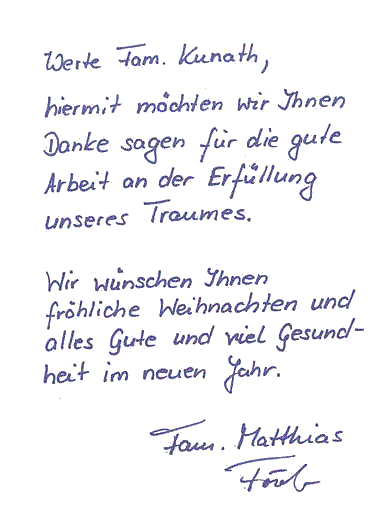 Werte Fam. Kunath,
hiermit möchten wir Ihnen
Danke sagen für die gute
Arbeit an der Erfüllung
unseres Traumes.
Wir wünschen Ihnen
fröhliche Weihnachten und
alles Gute und viel Gesund-
heit im neuen Jahr.
Fam. Matthias